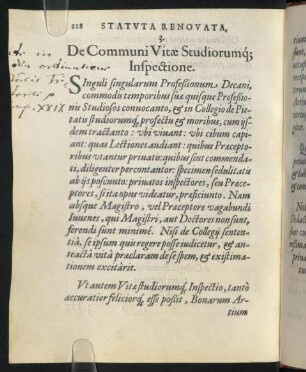 128 STATVTA RENOVATA,
3.
De Communi Vitæ Studiorumq́;
Inspectione.
SInguli singularum Professionum Decani,
commodi temporibus sua quisque Professio-
nis Studiosos conuocanto, & in Collegio de Pie-
tatis studiorumq́, profectu & moribus, cum ijs-
dem tractanto: vbi viuant: vbi cibum capi-
ant: quas Lectiones audiant: quibus Præcepto-
ribus vtantur priuatis: quibus sint commenda-
ti, diligenter percontantor: specimen sedulitatis
ab ijs poscunto: priuatos inspectores, seu Præce-
ptores, si ita opus videatur, præficiunto. Nam
absque Magistro, vel Præceptore vagabundi
Iuuenes, qui Magistri, aut Doctores non sunt,
ferendi sunt minimè. Nisi de Collegij senten-
tiâ, se ipsum quis regere posse iudicetur, & an-
teactâ vitâ præclaram de se spem, & existima-
tionem excitârit.
Vt autem Vitæ studiorumq́, Inspectio, tantò
accuratior feliciorq́, esse possit, Bonarum Ar-
tium